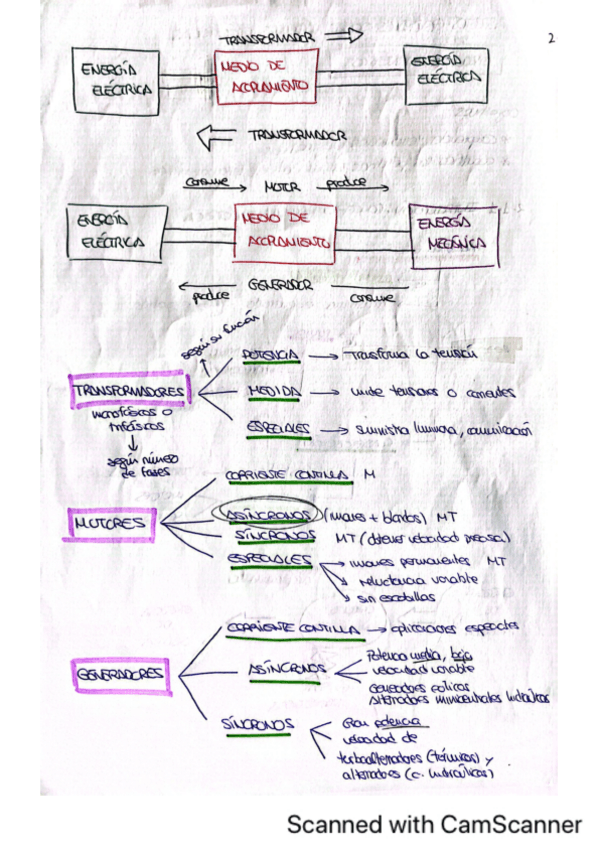 2
TRANSFORMADOR
ENERGÍA ELÉCTRICA
MEDIO DE ACOPLAMIENTO
ENERGÍA ELÉCTRICA
TRANSFORMADOR
consume MOTOR produce
ENERGÍA ELÉCTRICA
MEDIO DE ACOPLAMIENTO
ENERGÍA MECÁNICA
GENERADOR
produce consume
según su función
POTENCIA → Transforma la tensión
TRANSFORMADORES
monofásicos o
trifásicos
según número
de fases
MEDIDA → mide tensiones o corrientes
ESPECIALES → suministra luminosa, comunicación
MOTORES
CORRIENTE CONTINUA M
ASÍNCRONOS (imanes + blandos) MT
SÍNCRONOS MT (obtener velocidad precisa)
ESPECIALES → imanes permanentes MT
reluctancia variable
sin escobillas
GENERADORES
CORRIENTE CONTINUA → aplicaciones especiales
ASÍNCRONOS
Potencia media, baja
velocidad variable
Generadores eólicos
Alternadores minicentrales
SÍNCRONOS
Gran potencia
velocidad de
turboalternadores (térmicas) y
alternadores (c. hidráulicas)
Scanned with CamScanner